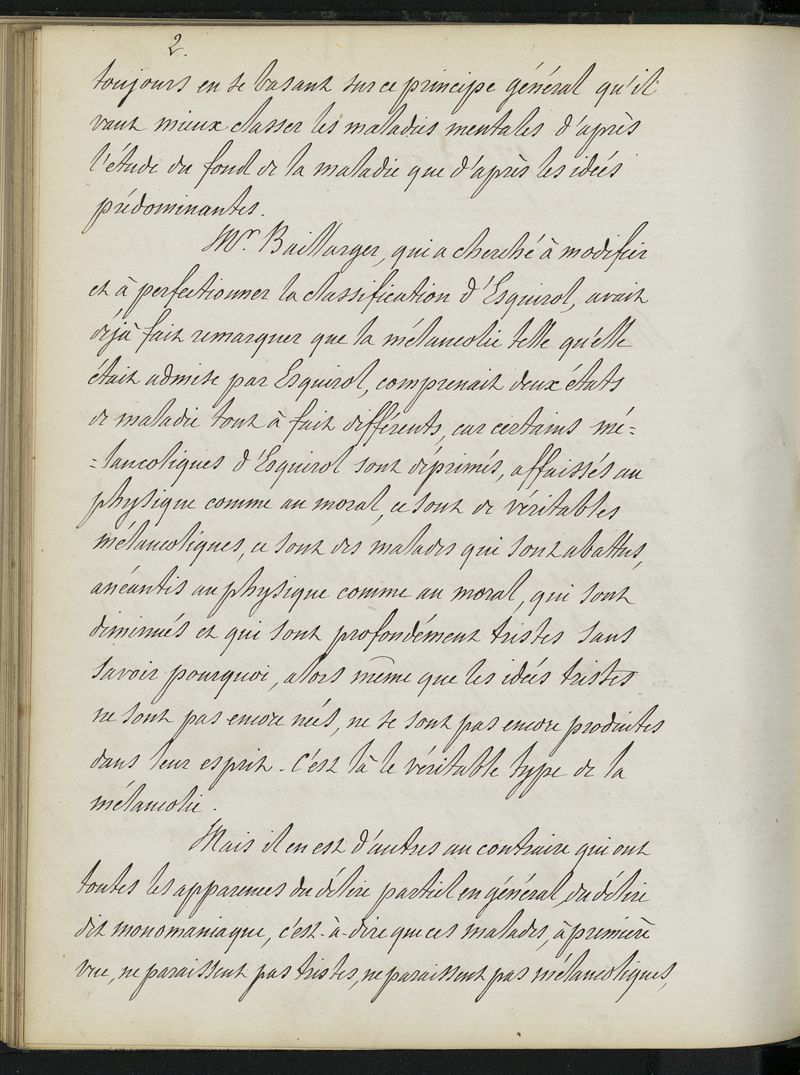 2.
toujours en se basant sur ce principe général qu'il
vaut mieux classer les maladies mentales d'après
l'étude du fond de la maladie que d'après les idées
prédominantes.
Mr. Baillarger, qui a cherché à modifier
et à perfectionner la classification d'Esquirol, avait
déjà fait remarquer que la mélancolie telle qu'elle
était admise par Esquirol, comprenait deux états
de maladie tout à fait différents, car certains mé=
=lancoliques d'Esquirol sont déprimés, affaissés au
physique comme au moral, ce sont de véritables
mélancoliques, ce sont des malades qui sont abattus,
anéantis au physique comme au moral, qui sont
diminués et qui sont profondément tristes sans
savoir pourquoi, alors même que les idées tristes
ne sont pas encore nées, ne se sont pas encore produites
dans leur esprit. C'est là le véritable type de la
mélancolie.
Mais il en est d'autres au contraire qui ont
toutes les apparences du délire partiel en général, du délire
dit monomaniaque, c'est-à-dire que ces malades, à première
vue, ne paraissent pas tristes, ne paraissent pas mélancoliques,